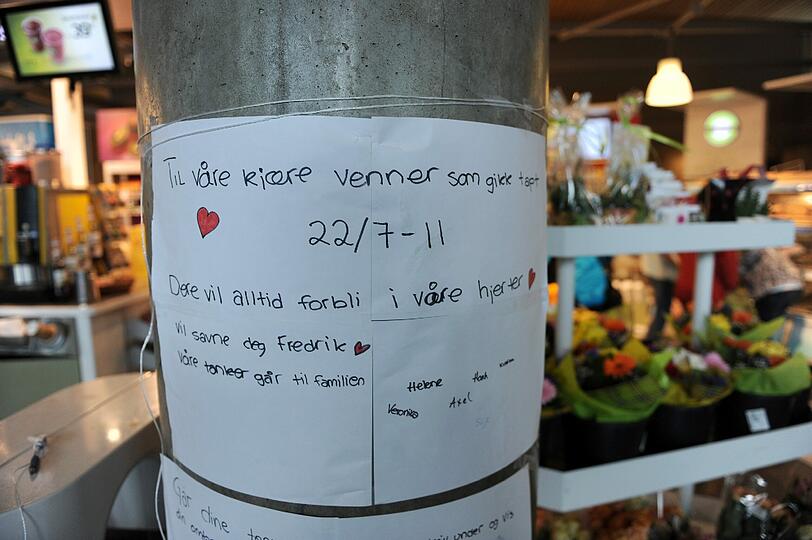 Til våre kjære venner som gikk tapt
22/7-11
Dere vil alltid forbli i våre hjerter
Vil savne deg Fredrik
Våre tanker går til familien
Helene
Veronika
Axel
Går dine
under og vis